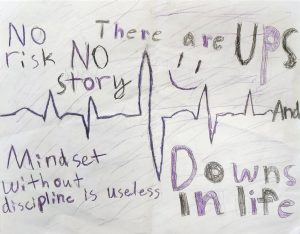 NO
risk NO
story
There are UPS
And
Downs
in life
Mindset
without
discipline is useless